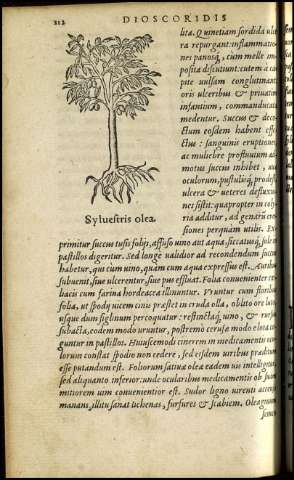 212 DIOSCORIDIS
lita. Quinetiam sordida ulce
ra repurgant: inflammatio-
nes panosq́, cum melle im
posita discutiunt: cutem à ca
pite uulsam conglutinant
oris ulceribus & priuatim
infantium, commanducata
medentur. Succus & deco-
ctum eosdem habent effe
ctus: sanguinis eruptiones,
ac muliebre profluuium ad-
motus succus inhibet,
oculorum, pustulisq́; prodest
ulcera & ueteres defluxio
nes sistit: quapropter in colly
ria additur, ad genarũ ero
siones perquam utilis. Ex
Syluestris olea.
primitur succus tusis folijs, affuso uino aut aqua, siccatusq́,
pastillos digeritur. Sed longè ualidior ad recondendum succus
habetur, qui cum uino, quàm cum aqua expressus est. Auribus
subuenit, siue ulcerentur, siue pus effluat. Folia conuenienter
bacis cum farina hordeacea illinuntur. Vruntur cum floribus
folia, ut spodij uicem cinis præstet in cruda olla, oblito ore luto
usque dum figlinum percoquatur: restinctaq́; uino, & rursus
subacta, eodem modo uruntur, postremò cerusæ modo elota co
guntur in pastillos. Huiuscemodi cinerem in medicamentis ocu
lorum constat spodio non cedere, sed eisdem uiribus præditum
esse putandum est. Foliorum satiuæ oleæ eadem uis intelligitur,
sed aliquanto inferior: unde ocularibus medicamentis ob suam
mitiorem uim conuenientior est. Sudor ligno uirenti accenso
manans, illitu sanat lichenas, furfures & scabiem. Oleaginum